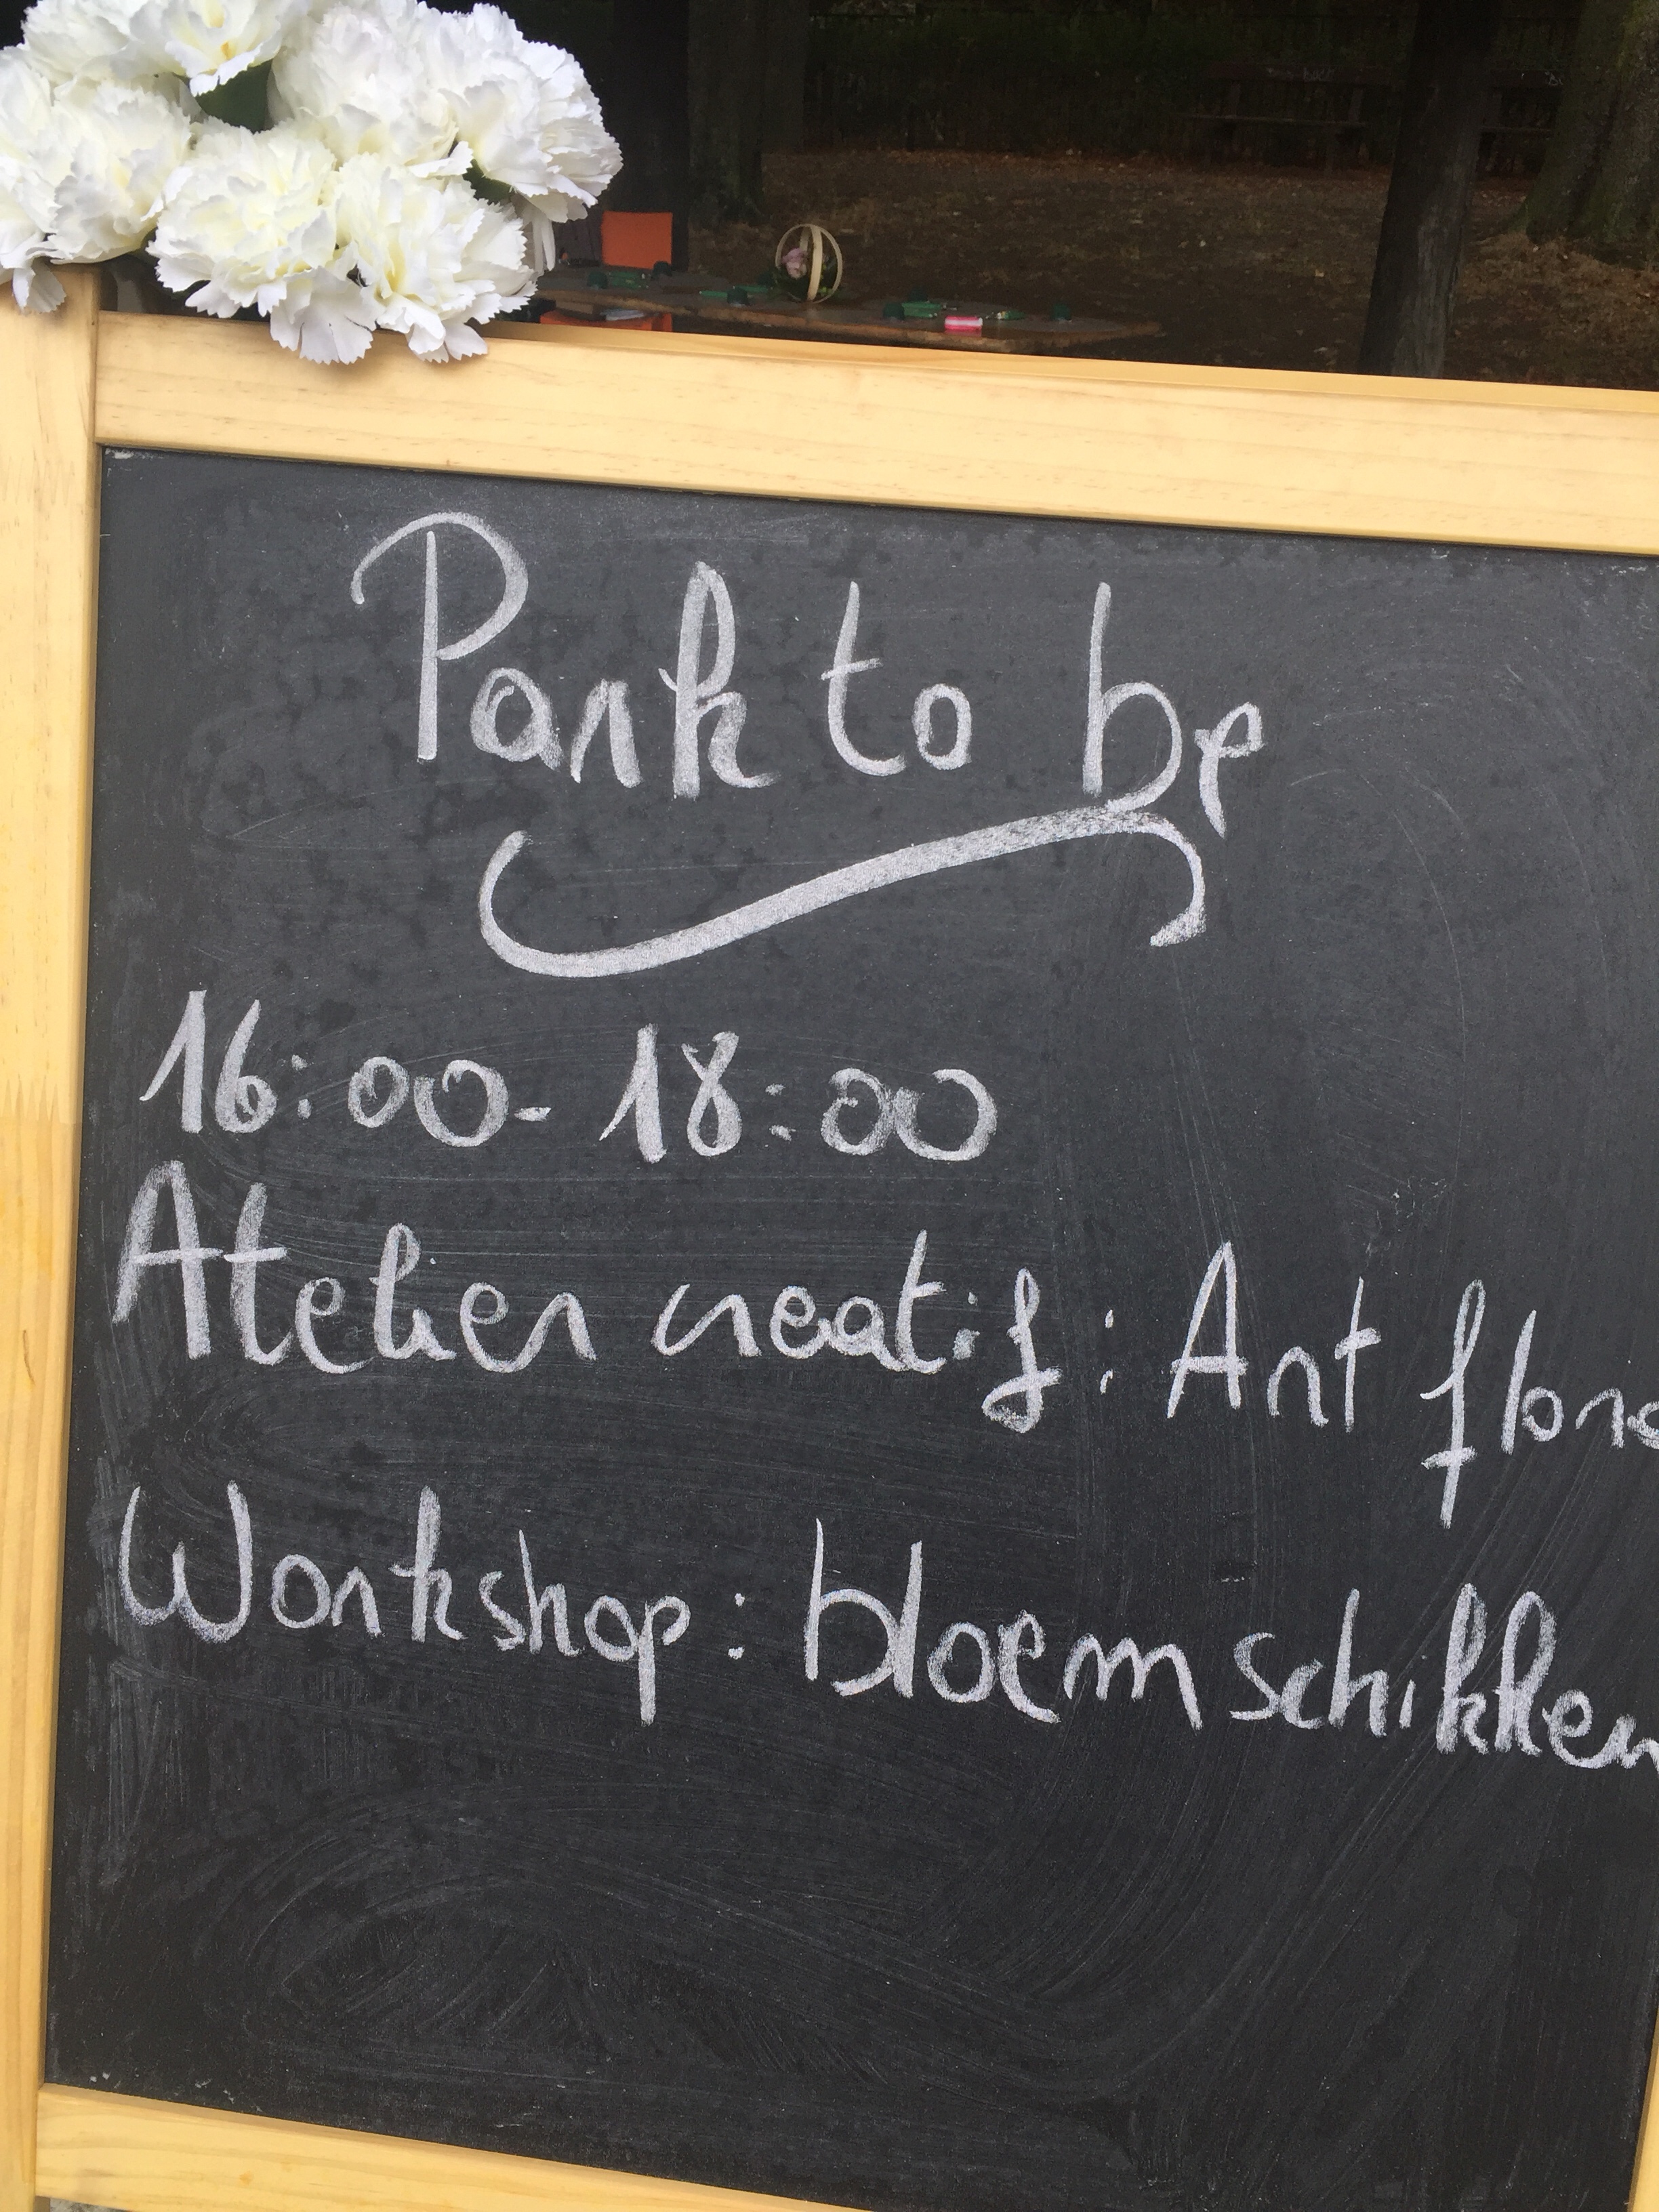 Park to be
16:00 - 18:00
Atelier creatif : Art flora
Workshop : bloemschikken